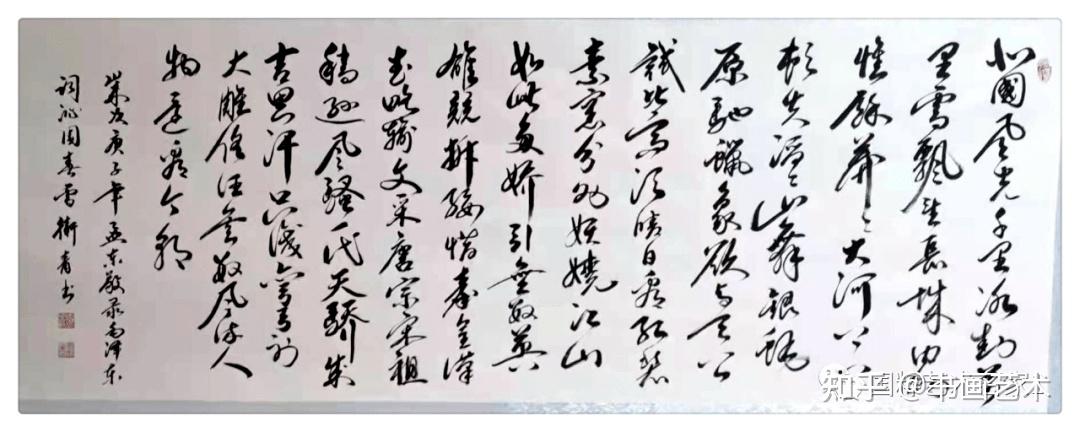 北國风光千里冰封萬
里雪飘望長城内外
惟餘莽〻大河上下
顿失滔〻山舞銀蛇
原馳蠟象欲与天公
試比高须晴日看红装
素裹分外妖嬈江山
如此多娇引無數英
雄競折腰惜秦皇漢
武略輸文采唐宗宋祖
稍遜风骚一代天骄成
吉思汗只識弯弓射
大雕俱往矣数风流人
物还看今朝
歲次庚子年孟冬敬录毛泽东
词沁园春雪衛青书
知乎